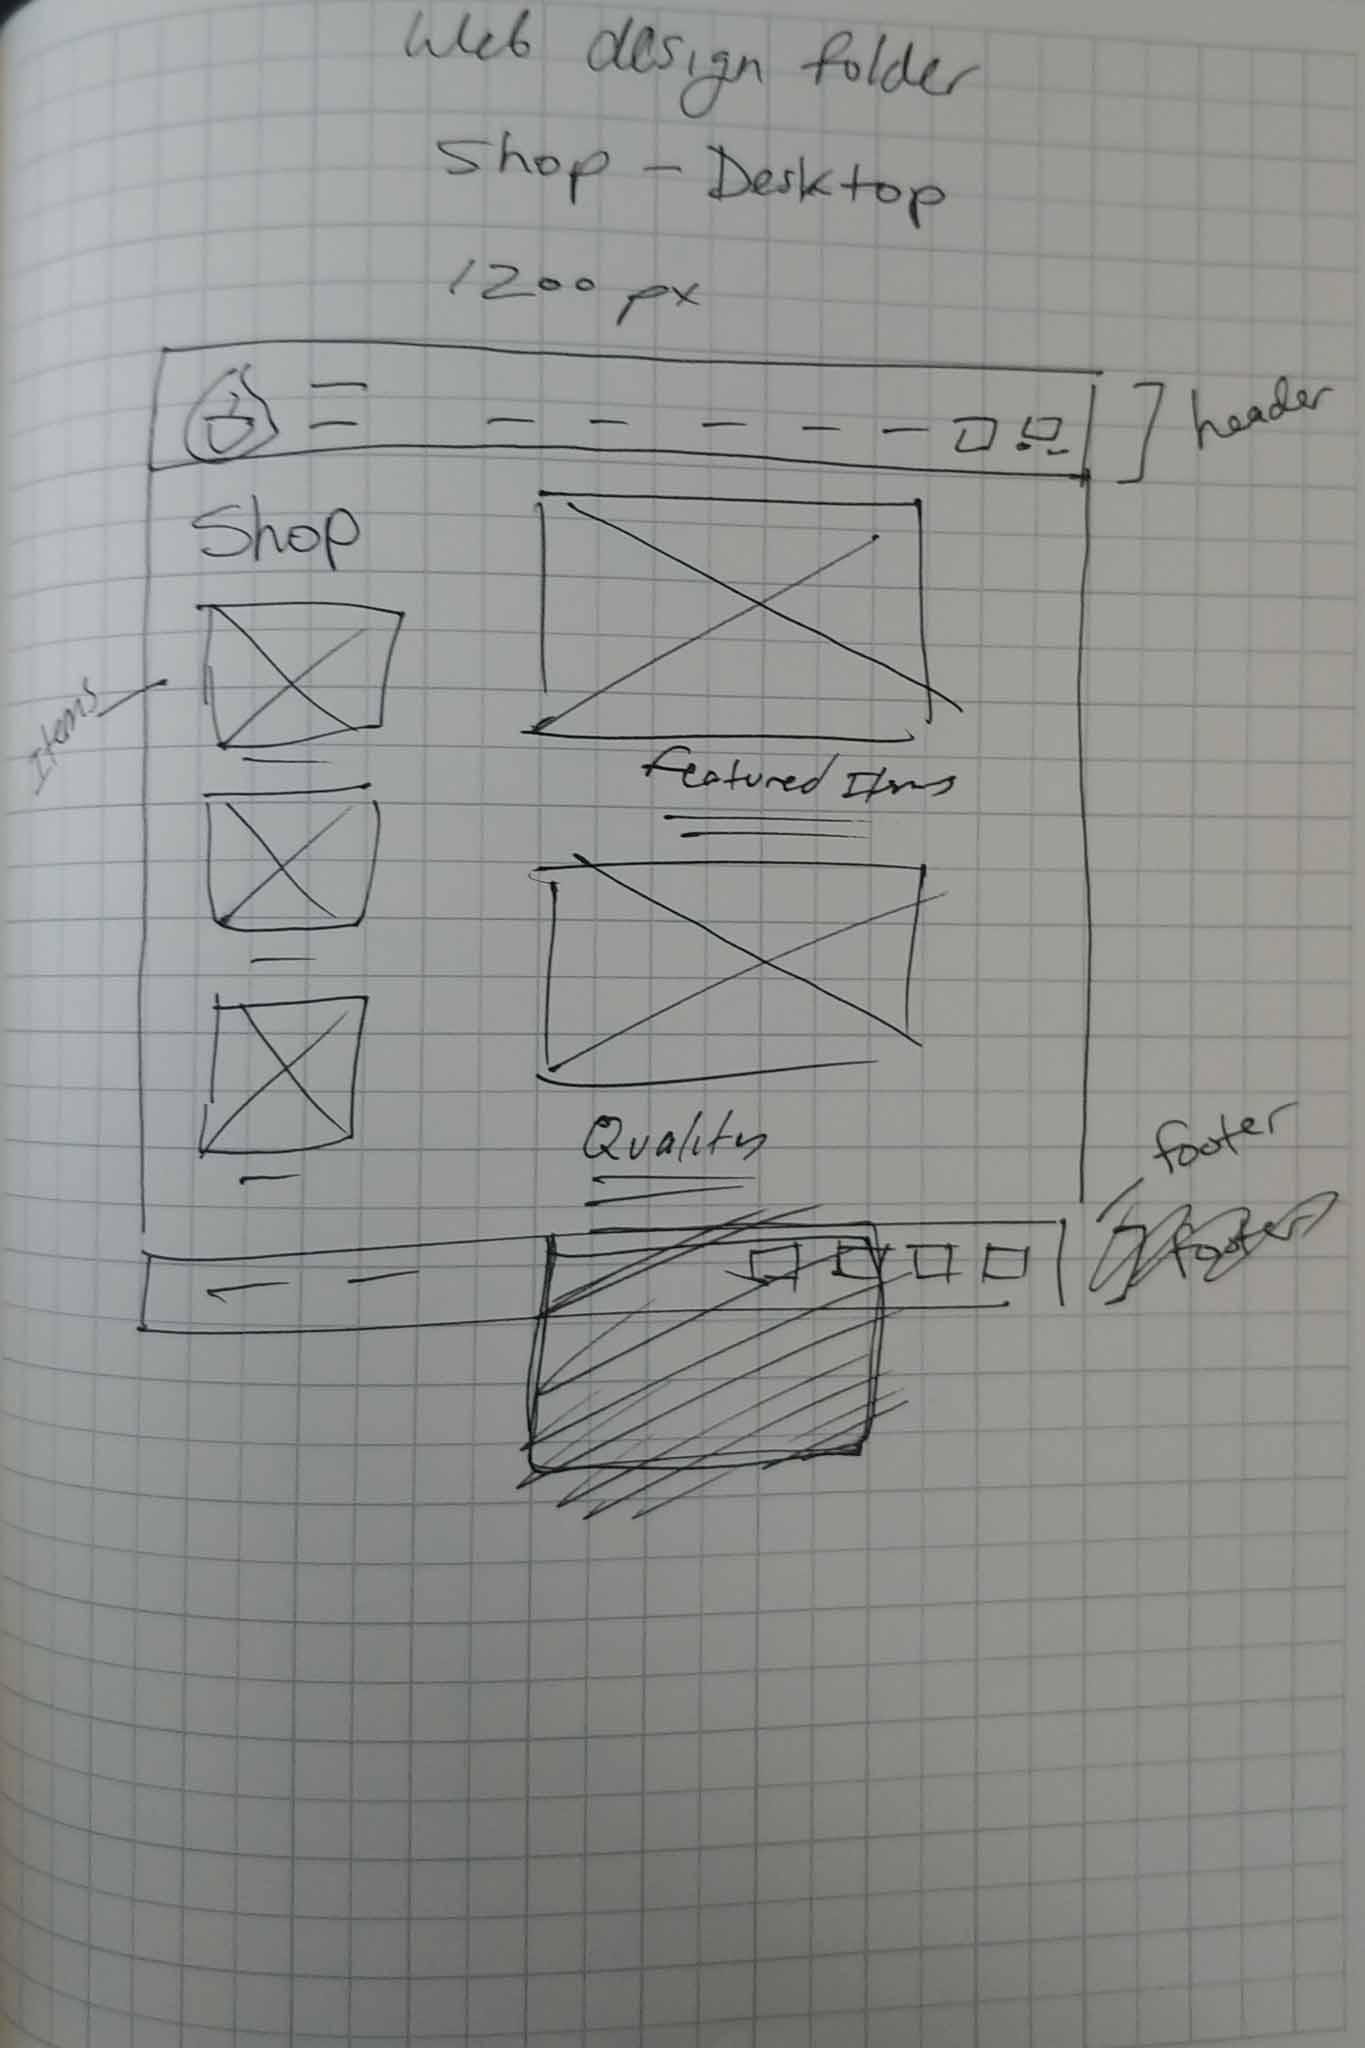 Web design folder
Shop - Desktop
1200 px
header
Shop
Items
Featured Items
Quality
footer
footer